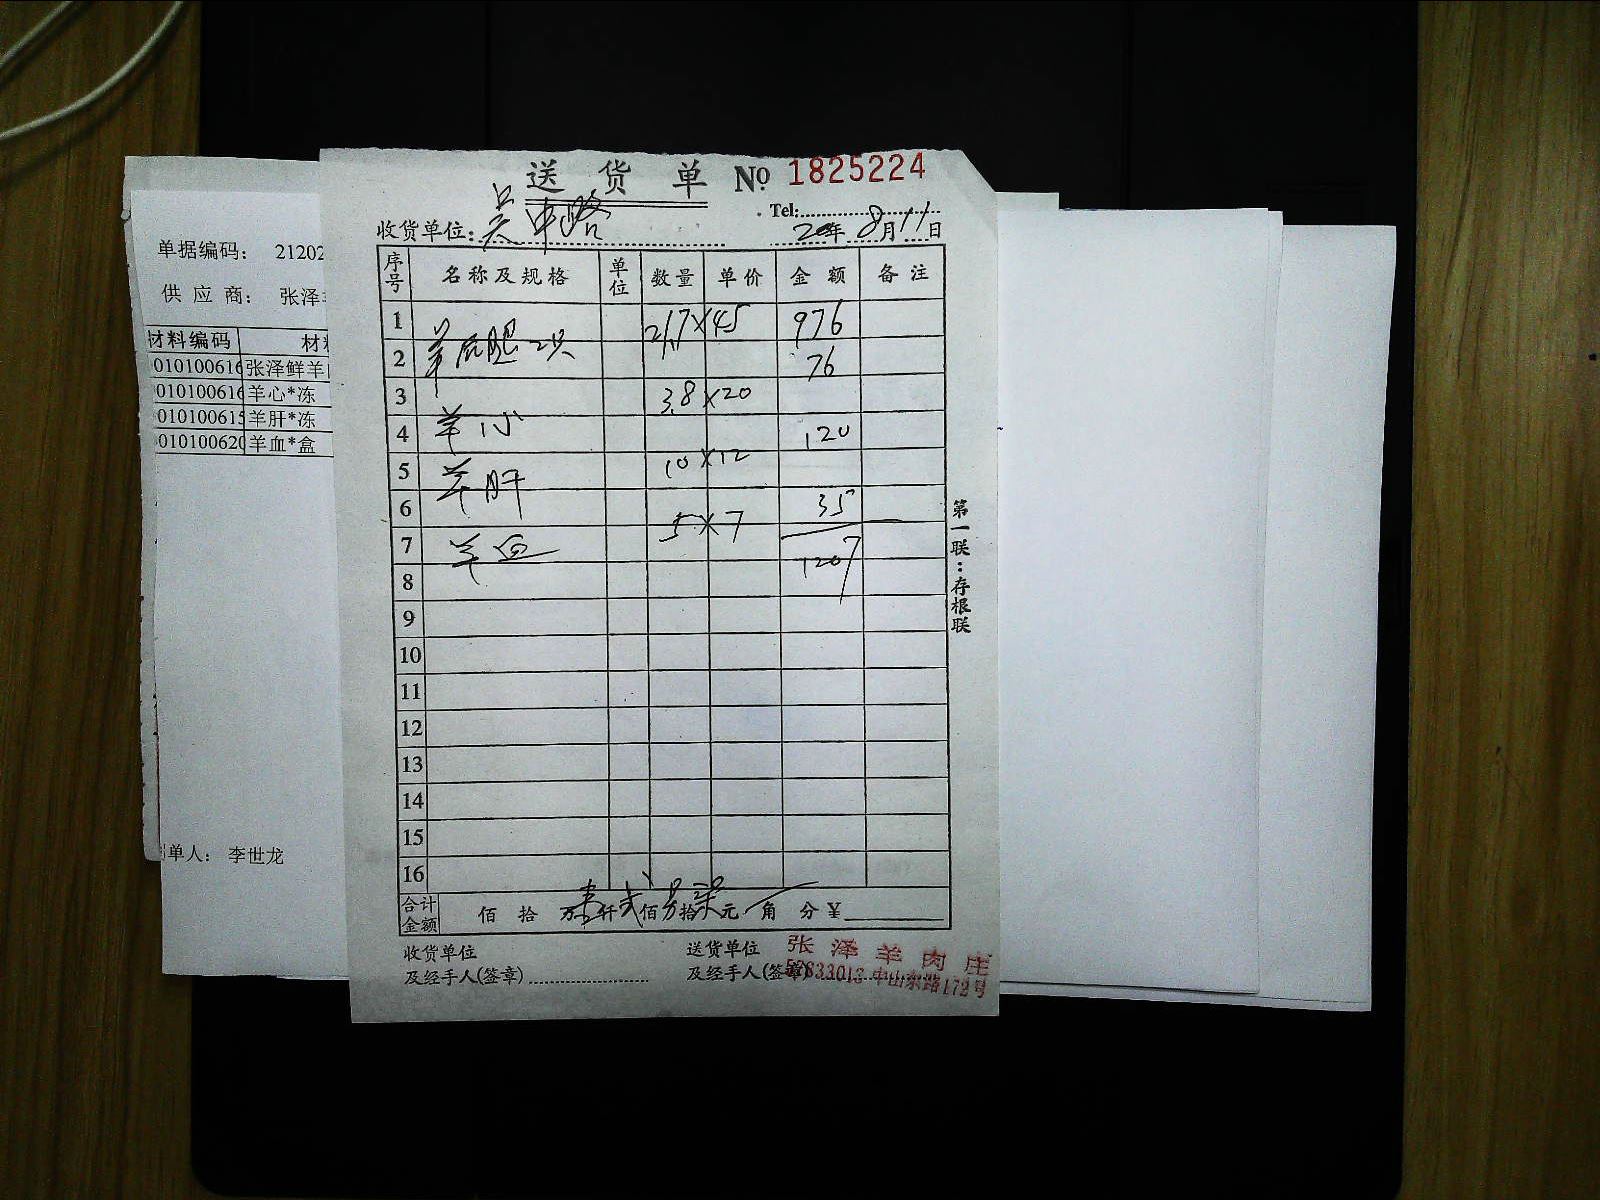 送货单 No 1825224
Tel:
收货单位: 吴中路 20年 8月 11日
序号 名称及规格 单位 数量 单价 金额 备注
1 羊后腿2只 21.7×45 976
2 76
3 羊心 3.8×20
4 120
5 羊肝 10×12
6 35
7 羊血 5×7
8 1207
9
10
11
12
13
14
15
16
合计金额 佰 拾 万壹仟贰佰另拾柒元 角 分 ¥
收货单位 送货单位 张泽羊肉庄
及经手人(签章) 及经手人(签章) 中山东路172号
第一联:存根联
单据编码: 21202
供应商: 张泽
材料编码 材
010100616 张泽鲜羊
010100616 羊心*冻
010100615 羊肝*冻
010100620 羊血*盒
单人: 李世龙